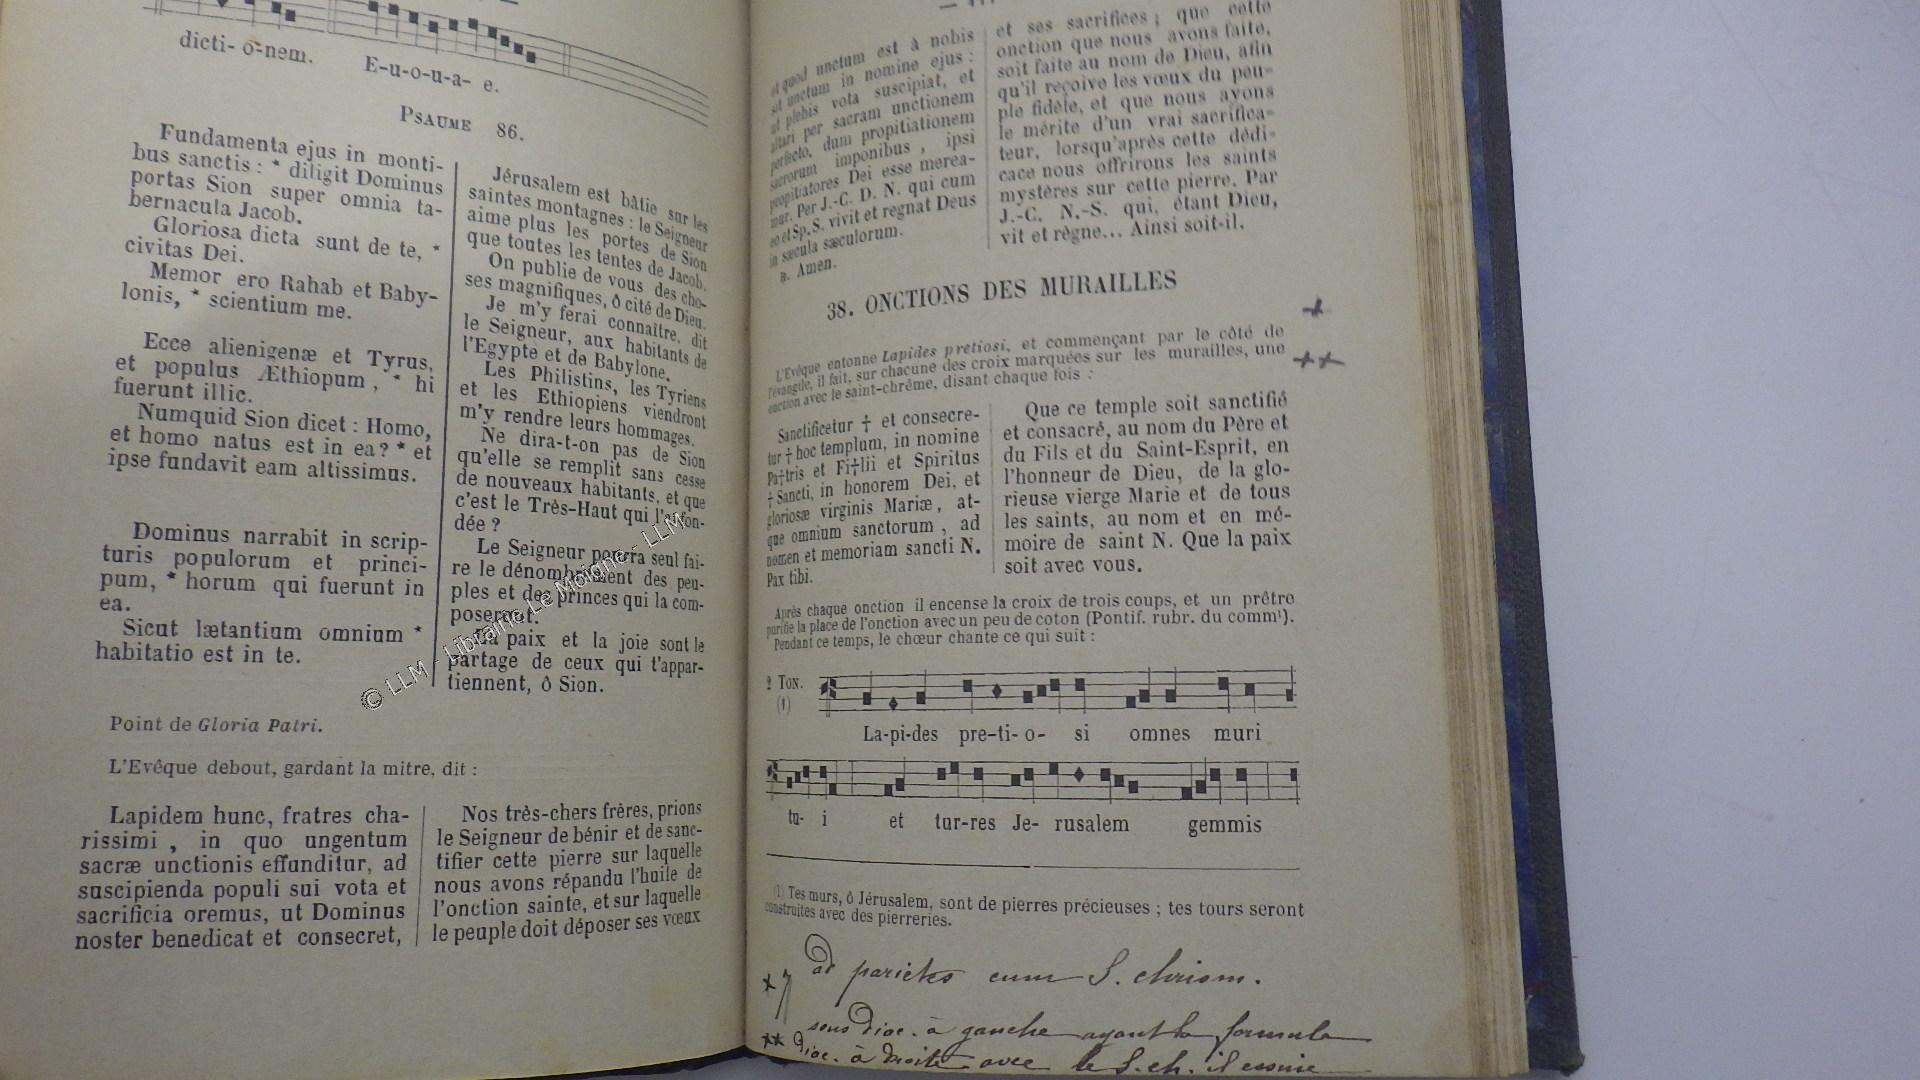 dicti- o-nem.
E-u-o-u-a- e.
PSAUME 86.
Fundamenta ejus in monti-
bus sanctis : * diligit Dominus
portas Sion super omnia ta-
bernacula Jacob.
Gloriosa dicta sunt de te, *
civitas Dei.
Memor ero Rahab et Baby-
lonis, * scientium me.
Ecce alienigenæ et Tyrus,
et populus Æthiopum, * hi
fuerunt illic.
Numquid Sion dicet : Homo,
et homo natus est in ea? * et
ipse fundavit eam altissimus.
Dominus narrabit in scrip-
turis populorum et princi-
pum, * horum qui fuerunt in
ea.
Sicut lætantium omnium *
habitatio est in te.
Jérusalem est bâtie sur les
saintes montagnes : le Seigneur
aime plus les portes de Sion
que toutes les tentes de Jacob.
On publie de vous des cho-
ses magnifiques, ô cité de Dieu.
Je m'y ferai connaître, dit
le Seigneur, aux habitants de
l'Egypte et de Babylone.
Les Philistins, les Tyriens
et les Ethiopiens viendront
m'y rendre leurs hommages.
Ne dira-t-on pas de Sion
qu'elle se remplit sans cesse
de nouveaux habitants, et que
c'est le Très-Haut qui l'a fon-
dée ?
Le Seigneur pourra seul fai-
re le dénombrement des peu-
ples et des princes qui la com-
poseront.
La paix et la joie sont le
partage de ceux qui t'appar-
tiennent, ô Sion.
© LLM - Librairie Le Moigne - LLM
Point de Gloria Patri.
L'Evêque debout, gardant la mitre, dit :
Lapidem hunc, fratres cha-
rissimi, in quo ungentum
sacræ unctionis effunditur, ad
suscipienda populi sui vota et
sacrificia oremus, ut Dominus
noster benedicat et consecret,
Nos très-chers frères, prions
le Seigneur de bénir et de sanc-
tifier cette pierre sur laquelle
nous avons répandu l'huile de
l'onction sainte, et sur laquelle
le peuple doit déposer ses vœux
et quod unctum est à nobis
sit unctum in nomine ejus :
ut plebis vota suscipiat, et
altari per sacram unctionem
perfecto, dum propitiationem
sacrorum imponibus, ipsi
propitiatores Dei esse merea-
mur. Per J.-C. D. N. qui cum
eo et Sp. S. vivit et regnat Deus
in sæcula sæculorum.
R. Amen.
et ses sacrifices ; que cette
onction que nous avons faite,
soit faite au nom de Dieu, afin
qu'il reçoive les vœux du peu-
ple fidèle, et que nous ayons
le mérite d'un vrai sacrifica-
teur, lorsqu'après cette dédi-
cace nous offrirons les saints
mystères sur cette pierre. Par
J.-C. N.-S. qui, étant Dieu,
vit et règne... Ainsi soit-il.
38. ONCTIONS DES MURAILLES
L'Evêque entonne Lapides pretiosi, et commençant par le côté de
l'évangile, il fait, sur chacune des croix marquées sur les murailles, une
onction avec le saint-chrême, disant chaque fois :
Sanctificetur † et consecre-
tur † hoc templum, in nomine
Pa†tris et Fi†lii et Spiritus
† Sancti, in honorem Dei, et
gloriosæ virginis Mariæ, at-
que omnium sanctorum, ad
nomen et memoriam sancti N.
Pax tibi.
Que ce temple soit sanctifié
et consacré, au nom du Père et
du Fils et du Saint-Esprit, en
l'honneur de Dieu, de la glo-
rieuse vierge Marie et de tous
les saints, au nom et en mé-
moire de saint N. Que la paix
soit avec vous.
Après chaque onction il encense la croix de trois coups, et un prêtre
purifie la place de l'onction avec un peu de coton (Pontif. rubr. du commt).
Pendant ce temps, le chœur chante ce qui suit :
2 TON.
(1)
La-pi-des pre-ti-o- si omnes muri
tu- i et tur-res Je- rusalem gemmis
(1) Tes murs, ô Jérusalem, sont de pierres précieuses ; tes tours seront
construites avec des pierreries.
ad parietes cum S. chrism.
sous diac. à gauche ayant la formule
** Diac. à Droite avec le S. ch. il essuie